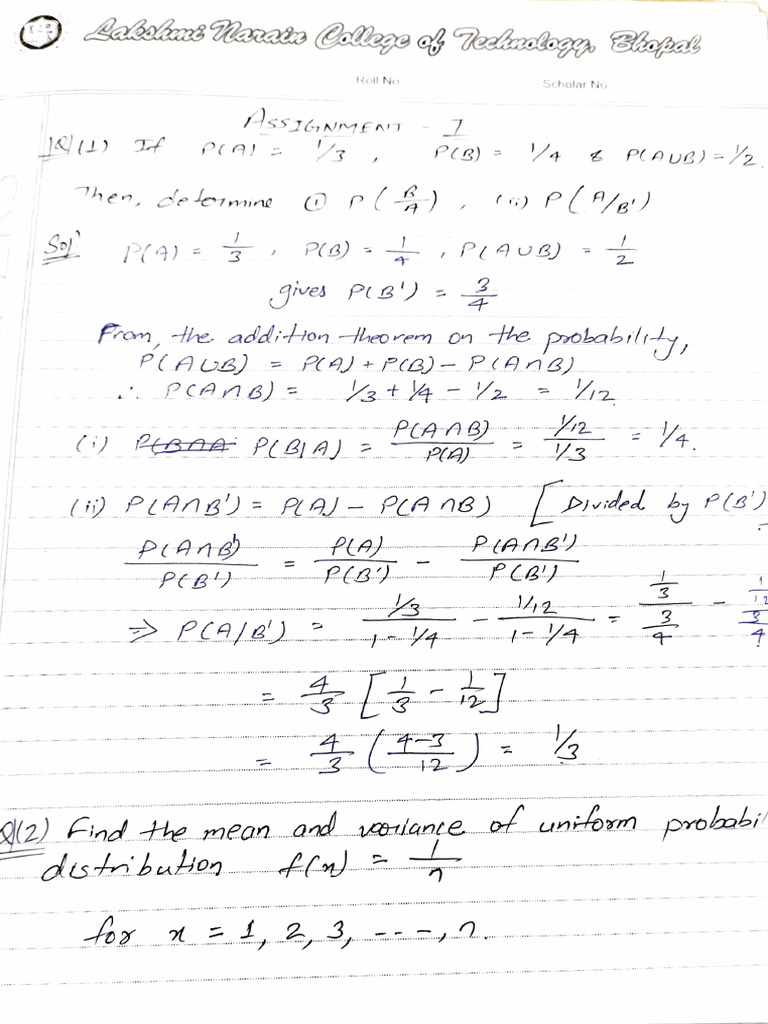 Lakshmi Narain College of Technology, Bhopal
Roll No Scholar No
ASSIGNMENT - I
Q(1) If P(A) = 1/3, P(B) = 1/4 & P(A∪B) = 1/2.
Then, determine (i) P(B/A), (ii) P(A/B')
Sol' P(A) = 1/3, P(B) = 1/4, P(A∪B) = 1/2
gives P(B') = 3/4
From, the addition theorem on the probability,
P(A∪B) = P(A) + P(B) - P(A∩B)
∴ P(A∩B) = 1/3 + 1/4 - 1/2 = 1/12
(i) P(B∩A P(B|A) = P(A∩B)/P(A) = (1/12)/(1/3) = 1/4.
(ii) P(A∩B') = P(A) - P(A∩B) [Divided by P(B')
P(A∩B')/P(B') = P(A)/P(B') - P(A∩B')/P(B')
⇒ P(A/B') = (1/3)/(1-1/4) - (1/12)/(1-1/4) = (1/3)/(3/4) - (1/12)/(3/4)
= 4/3 [1/3 - 1/12]
= 4/3 ((4-3)/12) = 1/3
Q(2) Find the mean and variance of uniform probabi
distribution f(x) = 1/n
for x = 1, 2, 3, ----, n.